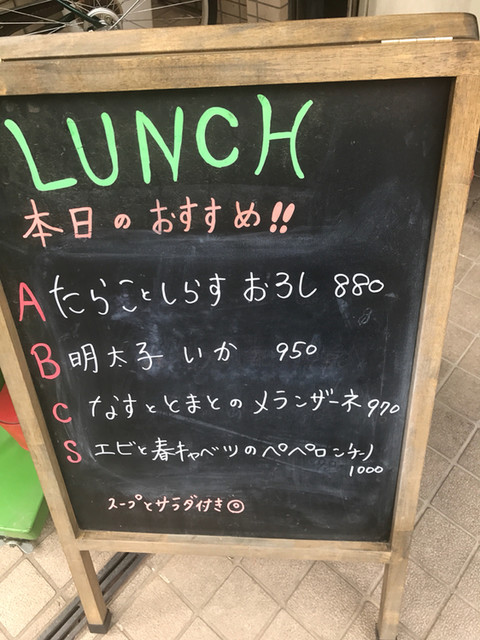 LUNCH
本日のおすすめ!!
A たらことしらす おろし 880
B 明太子 いか 950
C なすととまとの メランザーネ 970
S エビと春キャベツのペペロンチーノ
1000
スープとサラダ付き◎